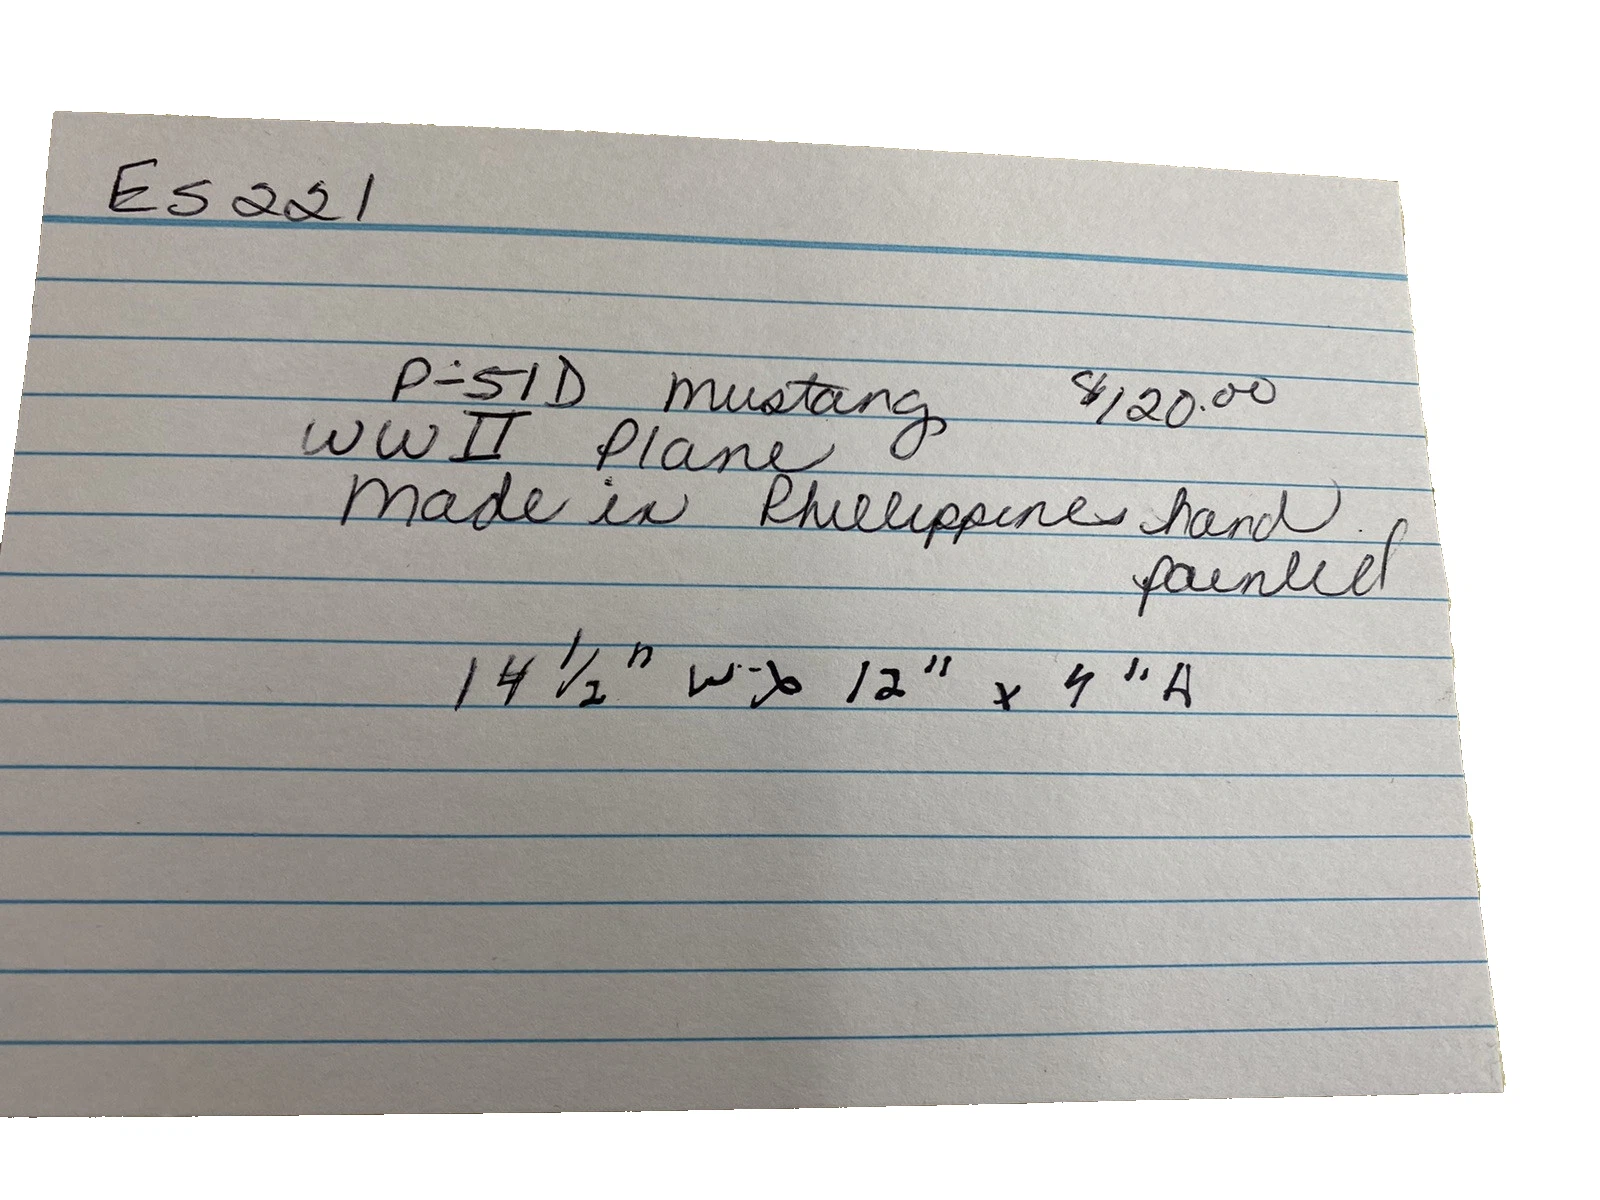 ES221
P-51D mustang $120.00
WW II Plane
Made in Phillippines hand
painted
14 1/2" W x 12" x 4" H